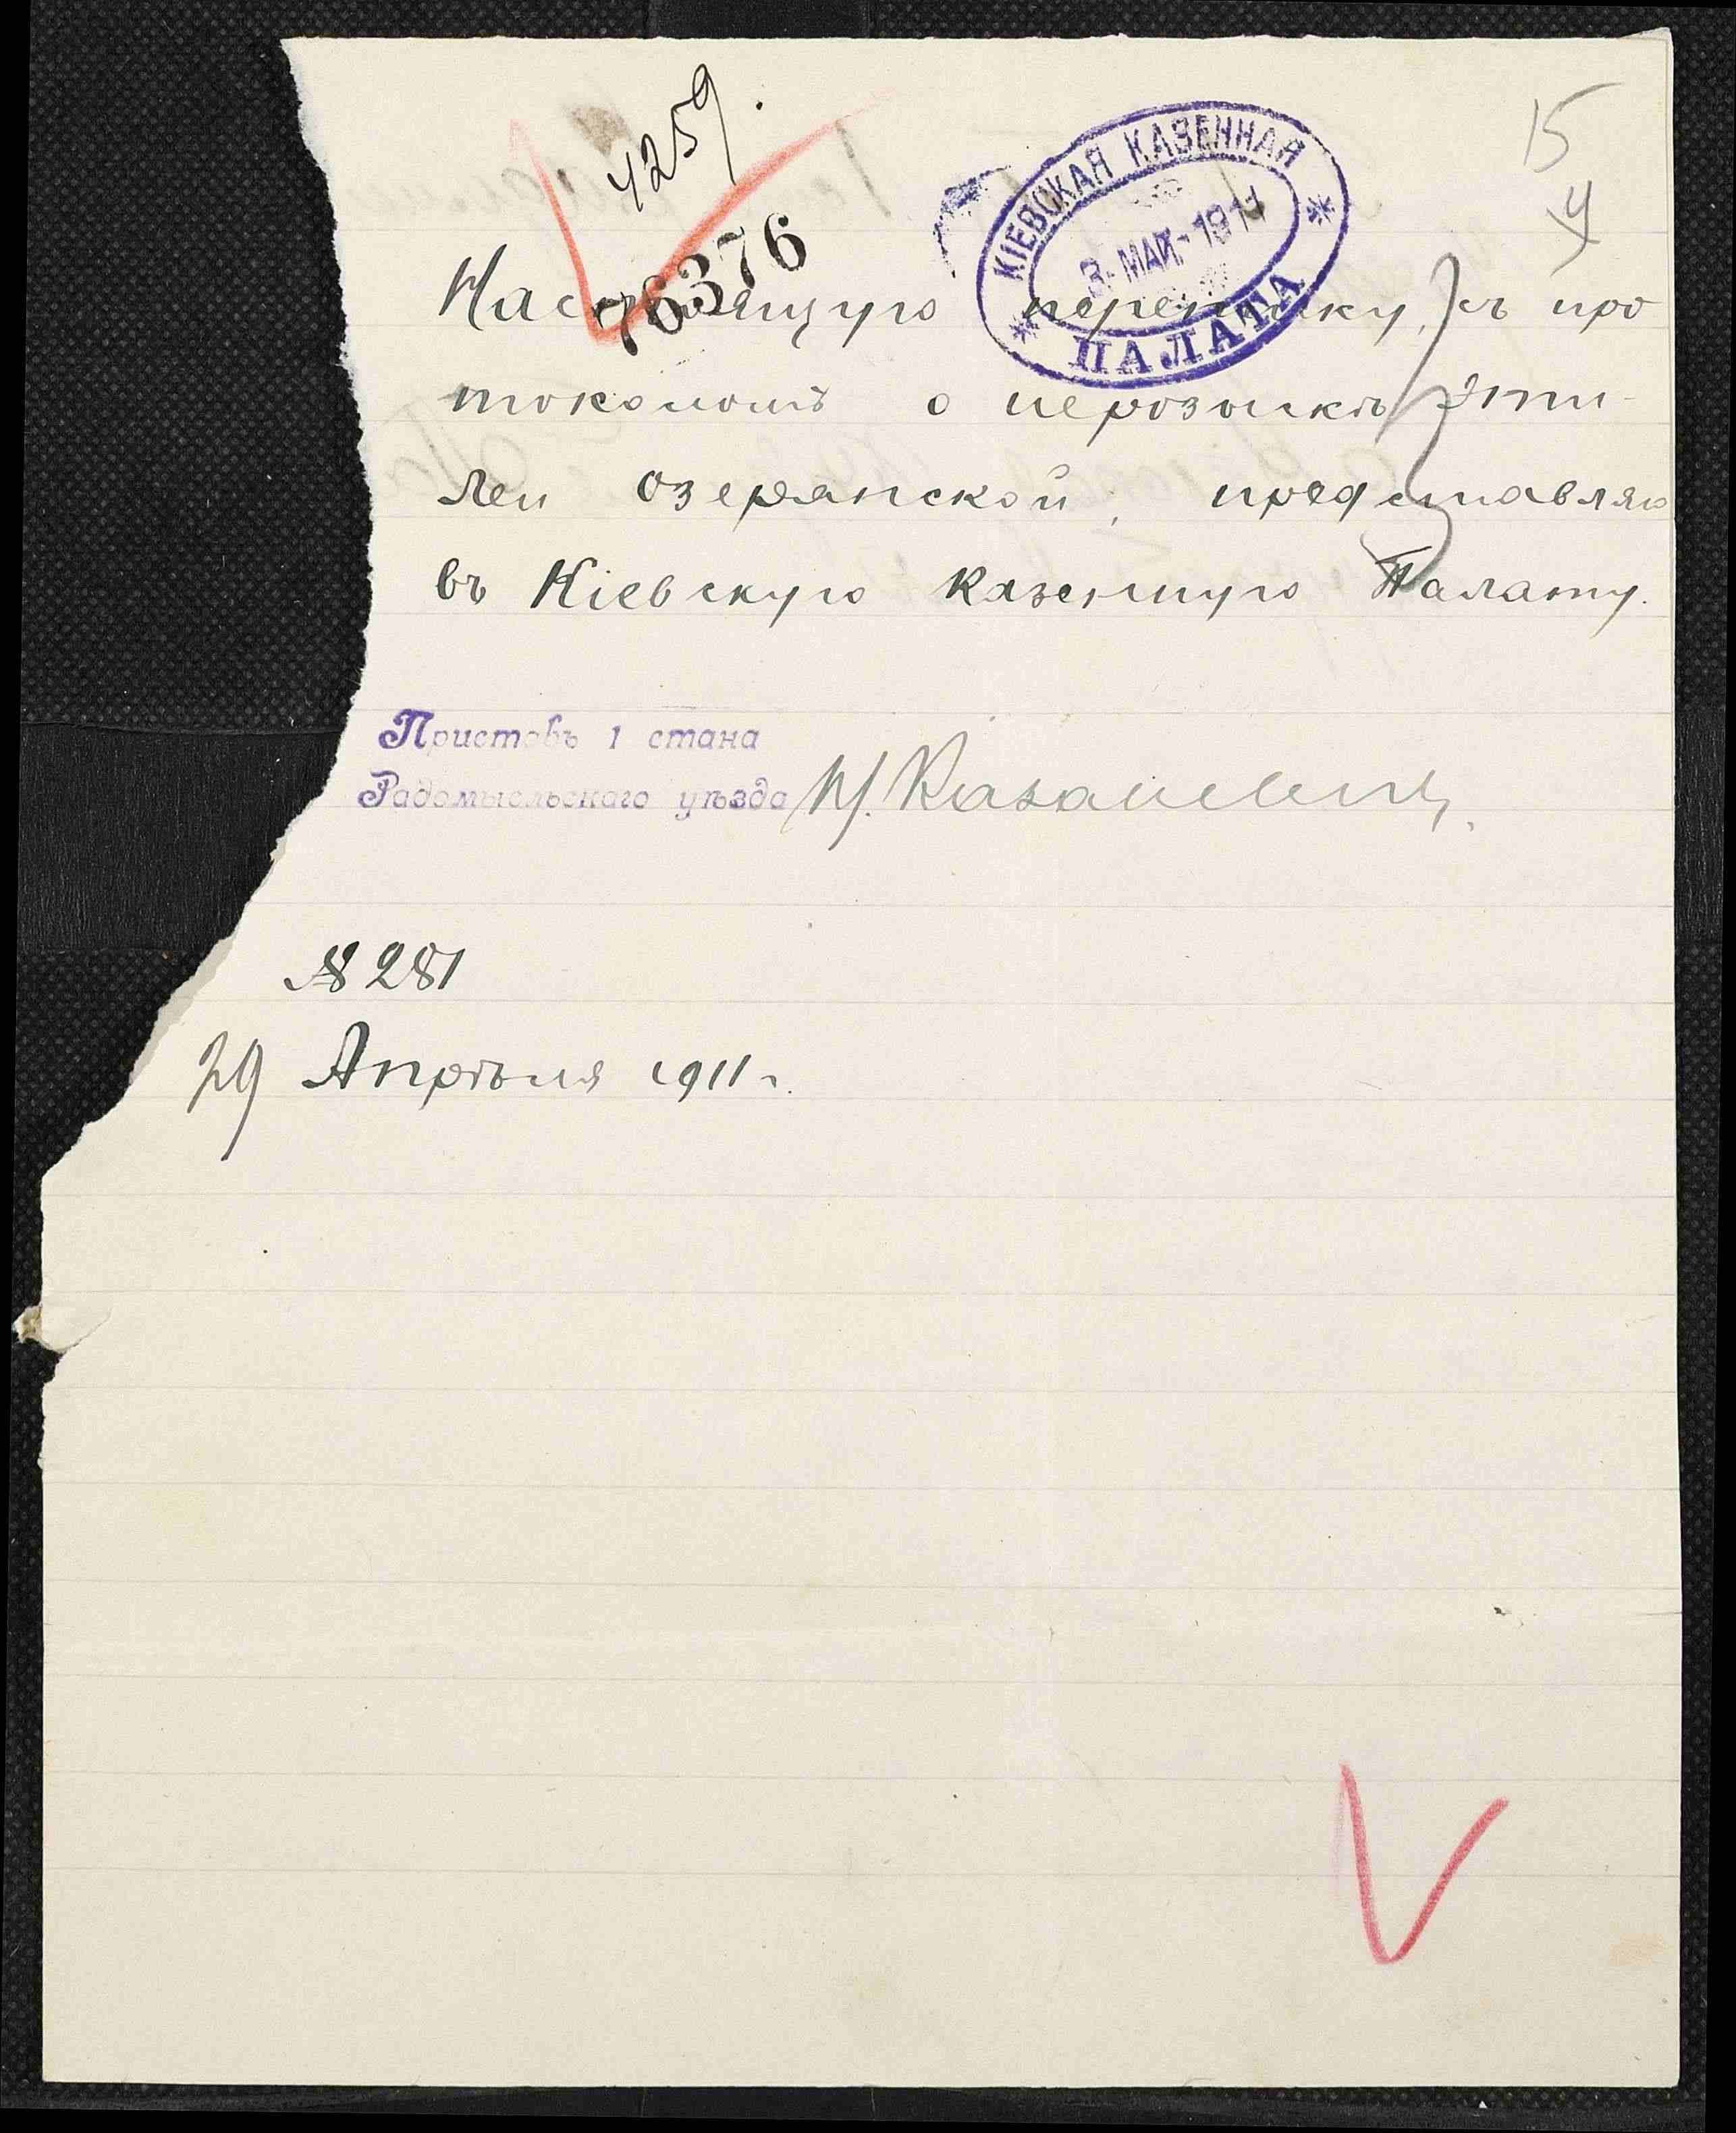 4259.
15
КІЕВСКАЯ КАЗЕННАЯ
3 МАЯ 1911
ПАЛАТА
76376
Настоящую переписку, съ про
токоломъ о нерозыскѣ Эти-
леи Озерянской, представляю
въ Кіевскую Казенную Палату.
Приставъ 1 стана
Радомысльскаго уѣзда
№ 281
29 Апрѣля 1911 г.